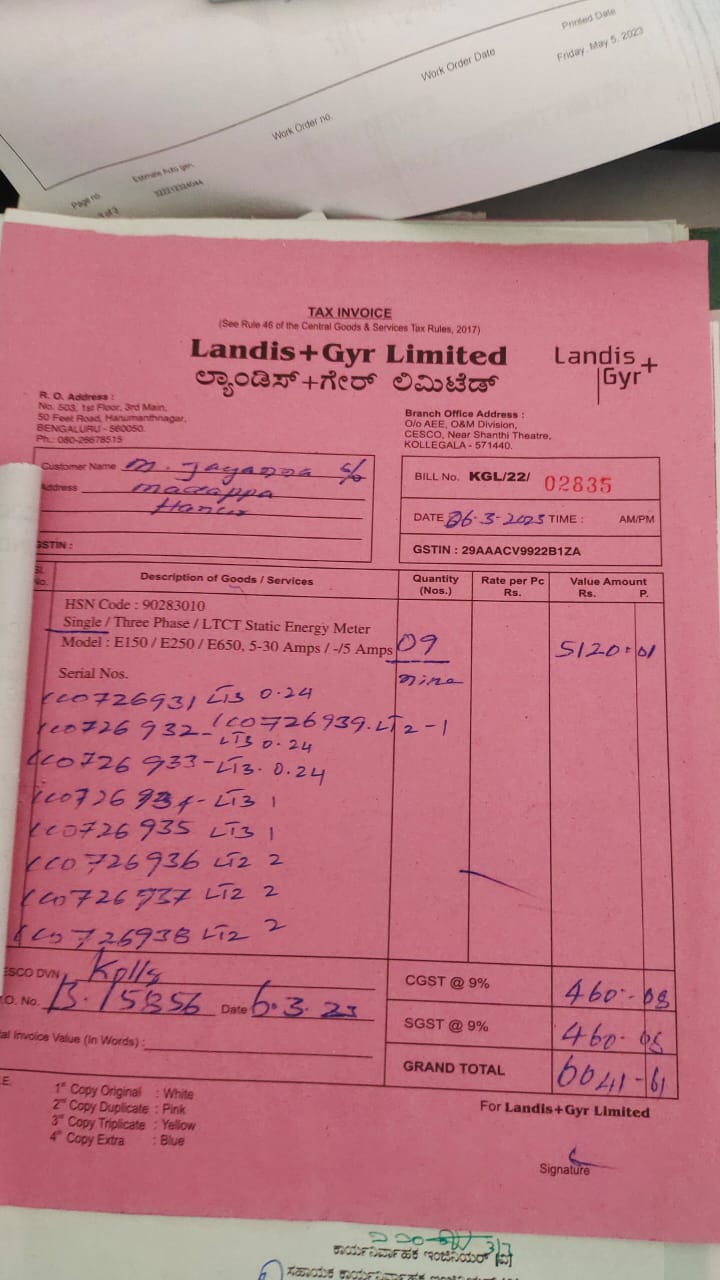 Printed Date
Work Order Date
Friday, May 5, 2023
Work Order no.
Estimate Auto gen.
Page no.
of 3
TAX INVOICE
(See Rule 46 of the Central Goods & Services Tax Rules, 2017)
Landis+Gyr Limited
Landis+
Gyr
ಲ್ಯಾಂಡಿಸ್+ಗೇರ್ ಲಿಮಿಟೆಡ್
R. O. Address :
No. 503, 1st Floor, 3rd Main,
50 Feet Road, Hanumanthnagar,
BENGALURU - 560050.
Ph.: 080-26678515
Branch Office Address :
O/o AEE, O&M Division,
CESCO, Near Shanthi Theatre,
KOLLEGALA - 571440.
Customer Name M. Jayanna S/o
Address Madappa
Hanur
GSTIN :
BILL No. KGL/22/ 02835
DATE 06-3-2023 TIME : AM/PM
GSTIN : 29AAACV9922B1ZA
Sl. No. Description of Goods / Services Quantity (Nos.) Rate per Pc Rs. Value Amount Rs. P.
HSN Code : 90283010
Single / Three Phase / LTCT Static Energy Meter
Model : E150 / E250 / E650, 5-30 Amps / -/5 Amps 09 5120=01
Serial Nos. nine
CC0726931 LT3 0.24
CC0726932- CC0726939. LT2-1
LT3 0.24
CC0726933-LT3. 0.24
CC0726934-LT3 1
CC0726935 LT3 1
CC0726936 LT2 2
CC0726937 LT2 2
CC0726938 LT2 2
ESCO DVN Kollg
O. No. B. 15856 Date 6.3.23
al Invoice Value (In Words) :
CGST @ 9% 460-
SGST @ 9% 460-
GRAND TOTAL 6041-61
1st Copy Original : White
2nd Copy Duplicate : Pink
3rd Copy Triplicate : Yellow
4th Copy Extra : Blue
For Landis+Gyr Limited
Signature
ಕಾರ್ಯನಿರ್ವಾಹಕ ಇಂಜಿನಿಯರ್
ಸಹಾಯಕ